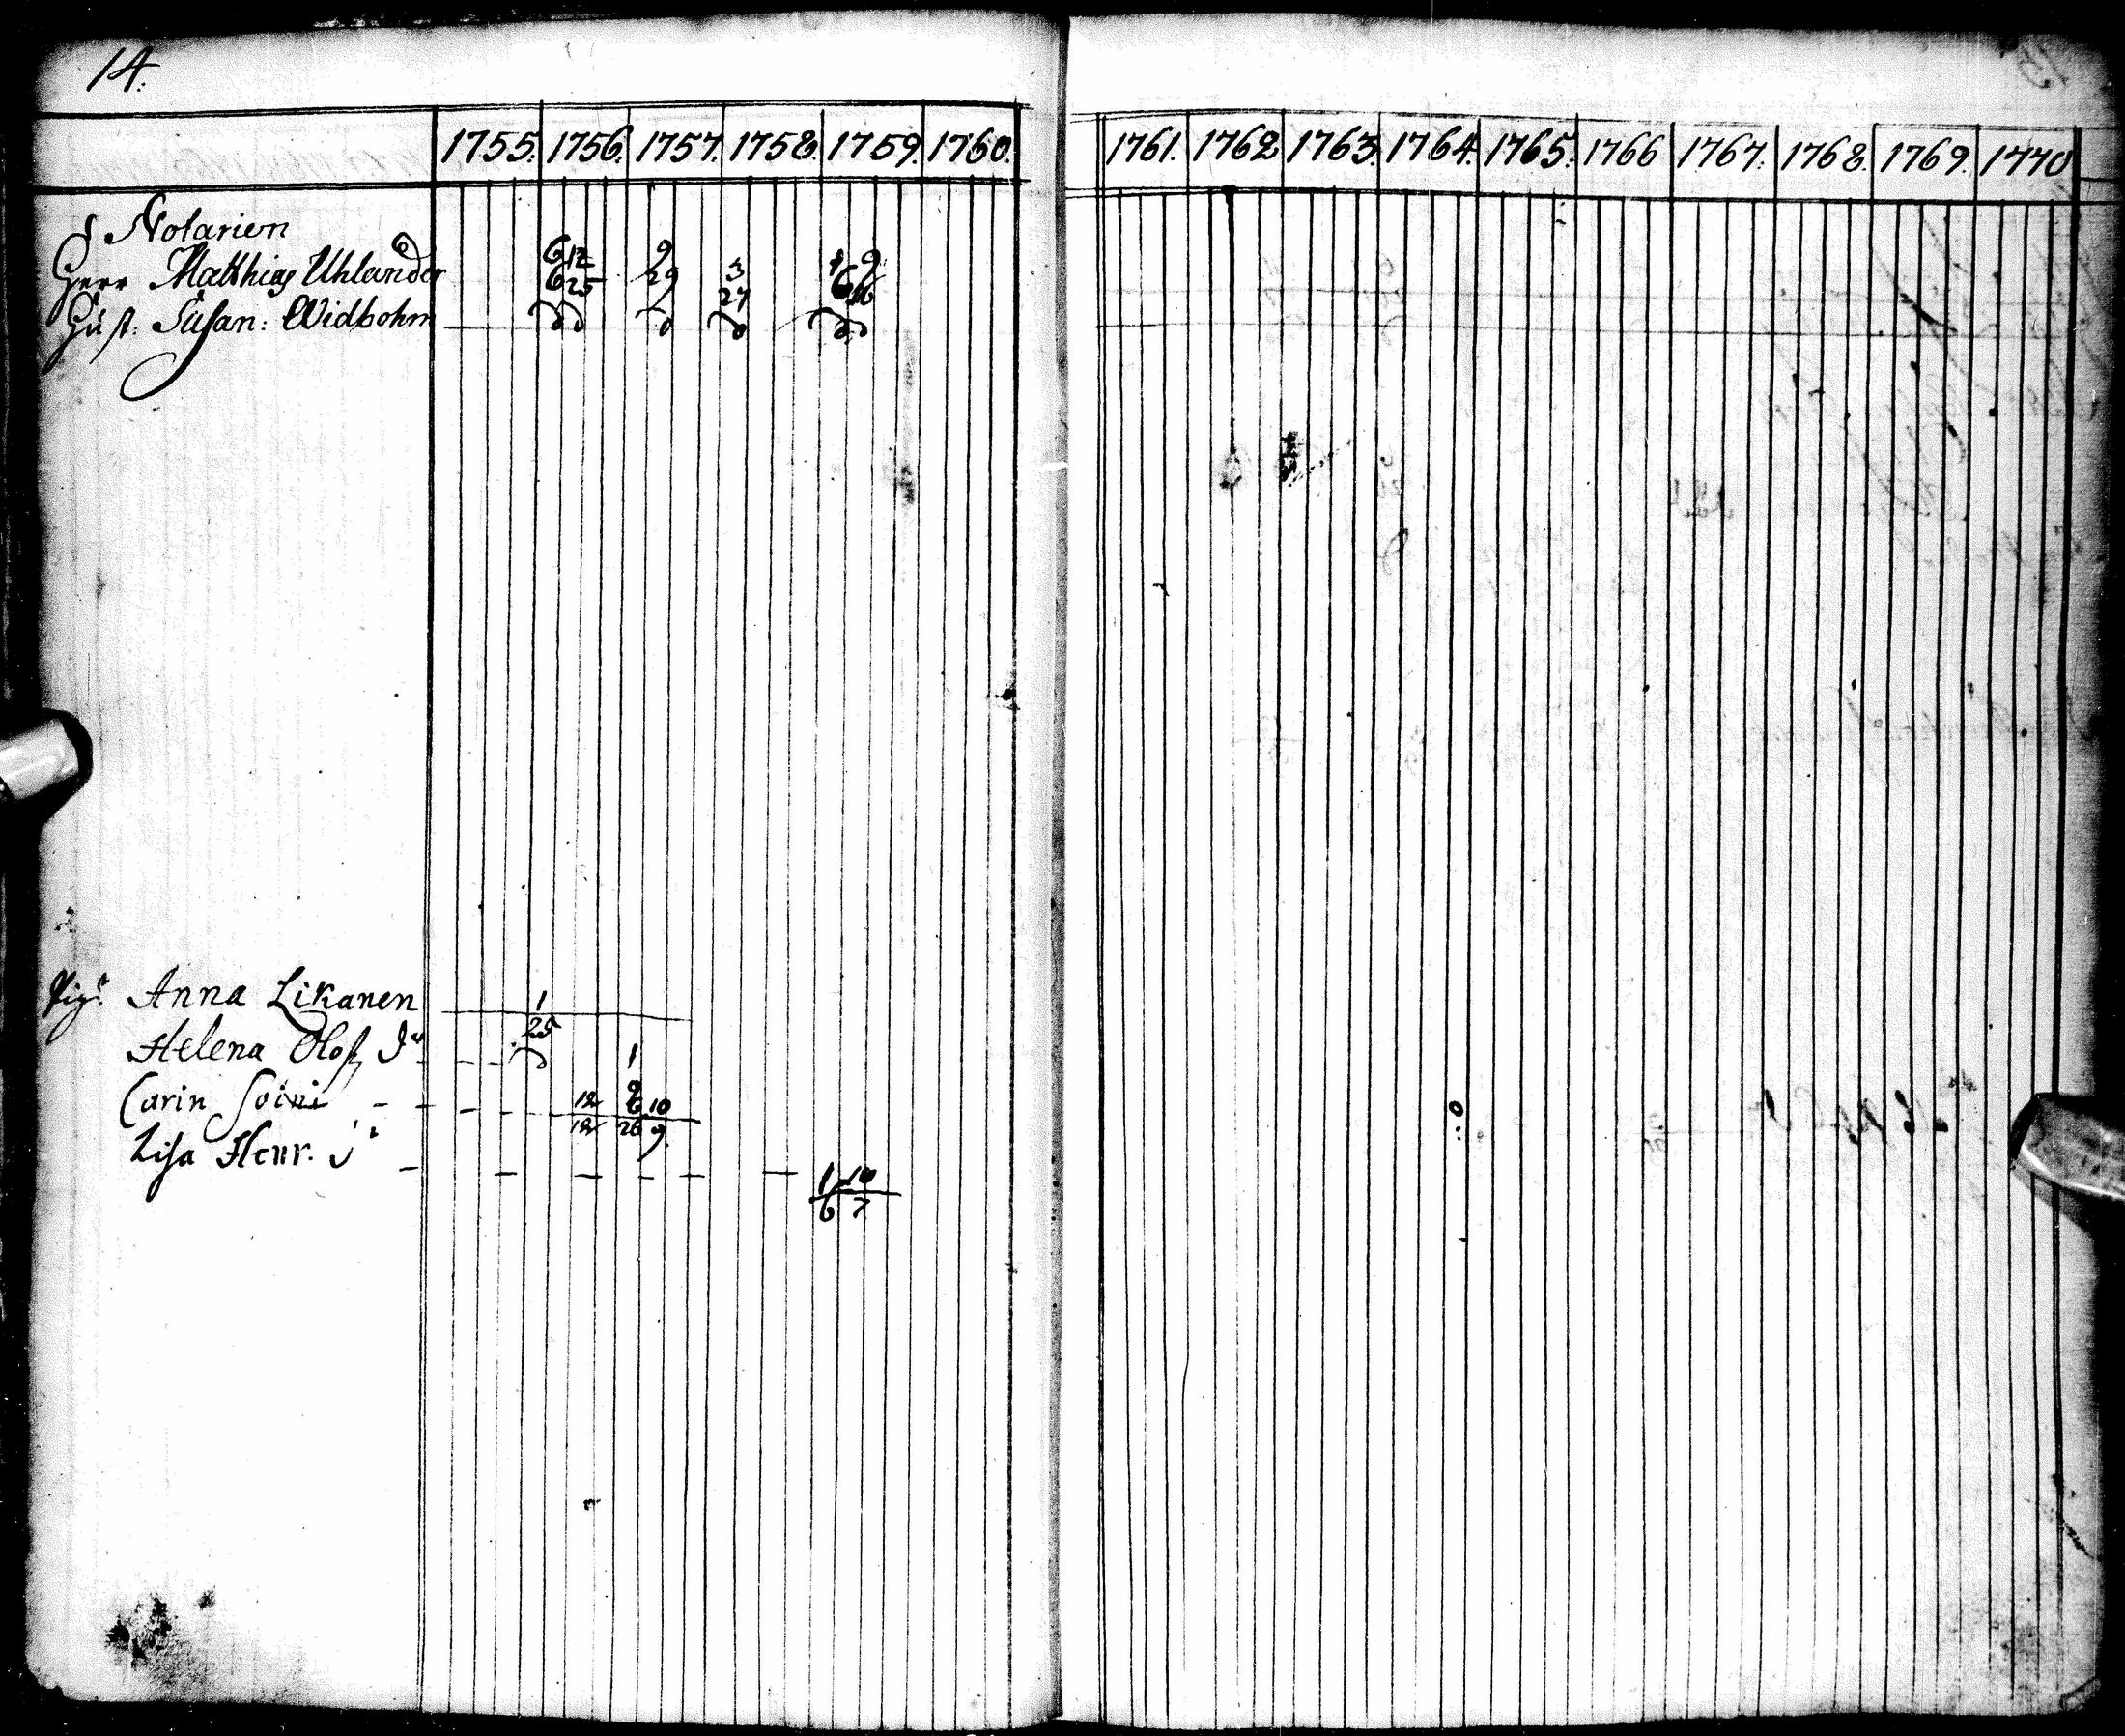 14.
1755. 1756. 1757. 1758. 1759. 1760. 1761. 1762 1763. 1764. 1765. 1766 1767. 1768. 1769. 1770
Notarien
Herr Matthias Uhlander 6 12 9 3 1 9
6 25 29 27 6 16
Hust: Susan: Widbohm
Pig: Anna Likanen 1
25
Helena Olofs Dr 1
9
Carin Soini 12 6 10
12 26 9
Lisa Henr. D
1 10
6 7